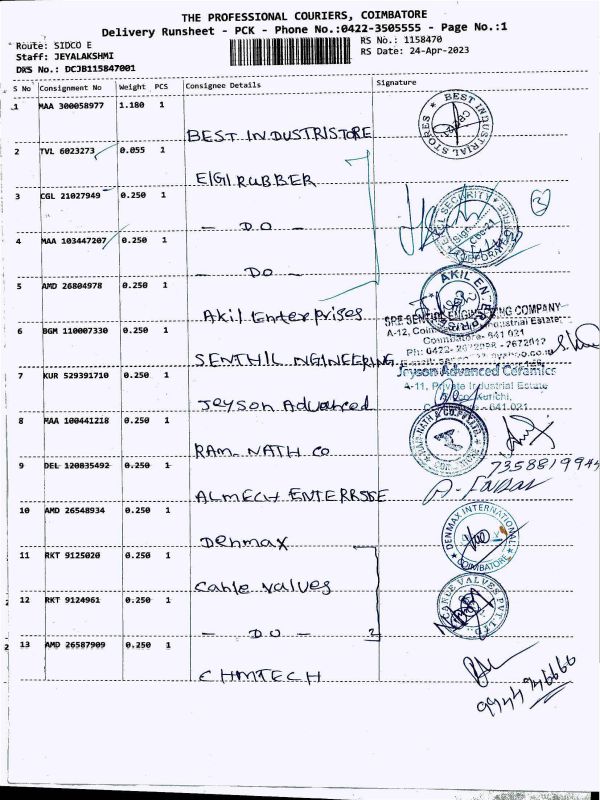 THE PROFESSIONAL COURIERS, COIMBATORE
Delivery Runsheet - PCK - Phone No.:0422-3505555 - Page No.:1
Route: SIDCO E
RS No.: 1158470
Staff: JEYALAKSHMI
RS Date: 24-Apr-2023
DRS No.: DCJB115847001
S No Consignment No Weight PCS Consignee Details Signature
1 MAA 300058977 1.180 1
BEST INDUSTRISTORE
BEST INDUSTRIAL STORES
2 TVL 6023273 0.055 1
EIGI RUBBER
3 CGL 21027949 0.250 1
- DO -
SECURITY
4 MAA 103447207 0.250 1
- DO -
5 AMD 26804978 0.250 1
Akil Enterprises
AKIL EN
6 BGM 110007330 0.250 1
SENTHIL NGINEERING
COMPANY
Industrial Estate,
Coimbatore- 641 021
Ph: 0422- - 2672012
7 KUR 529391710 0.250 1
Jeyson Advanced
Jeyson Advanced Ceramics
A-11, Private Industrial Estate
Kurichi,
- 641 021
8 MAA 100441218 0.250 1
RAM- NATH CO
9 DEL 120835492 0.250 1
ALMECH ENTERRSSE
7358819944
10 AMD 26548934 0.250 1
Denmax
DENMAX INTERNATIONAL
COIMBATORE
11 RKT 9125020 0.250 1
Cable Valves
12 RKT 9124961 0.250 1
- DO - 2
CARLE VALVES PVT. LTD.
13 AMD 26587909 0.250 1
CHMTECH
9944746666